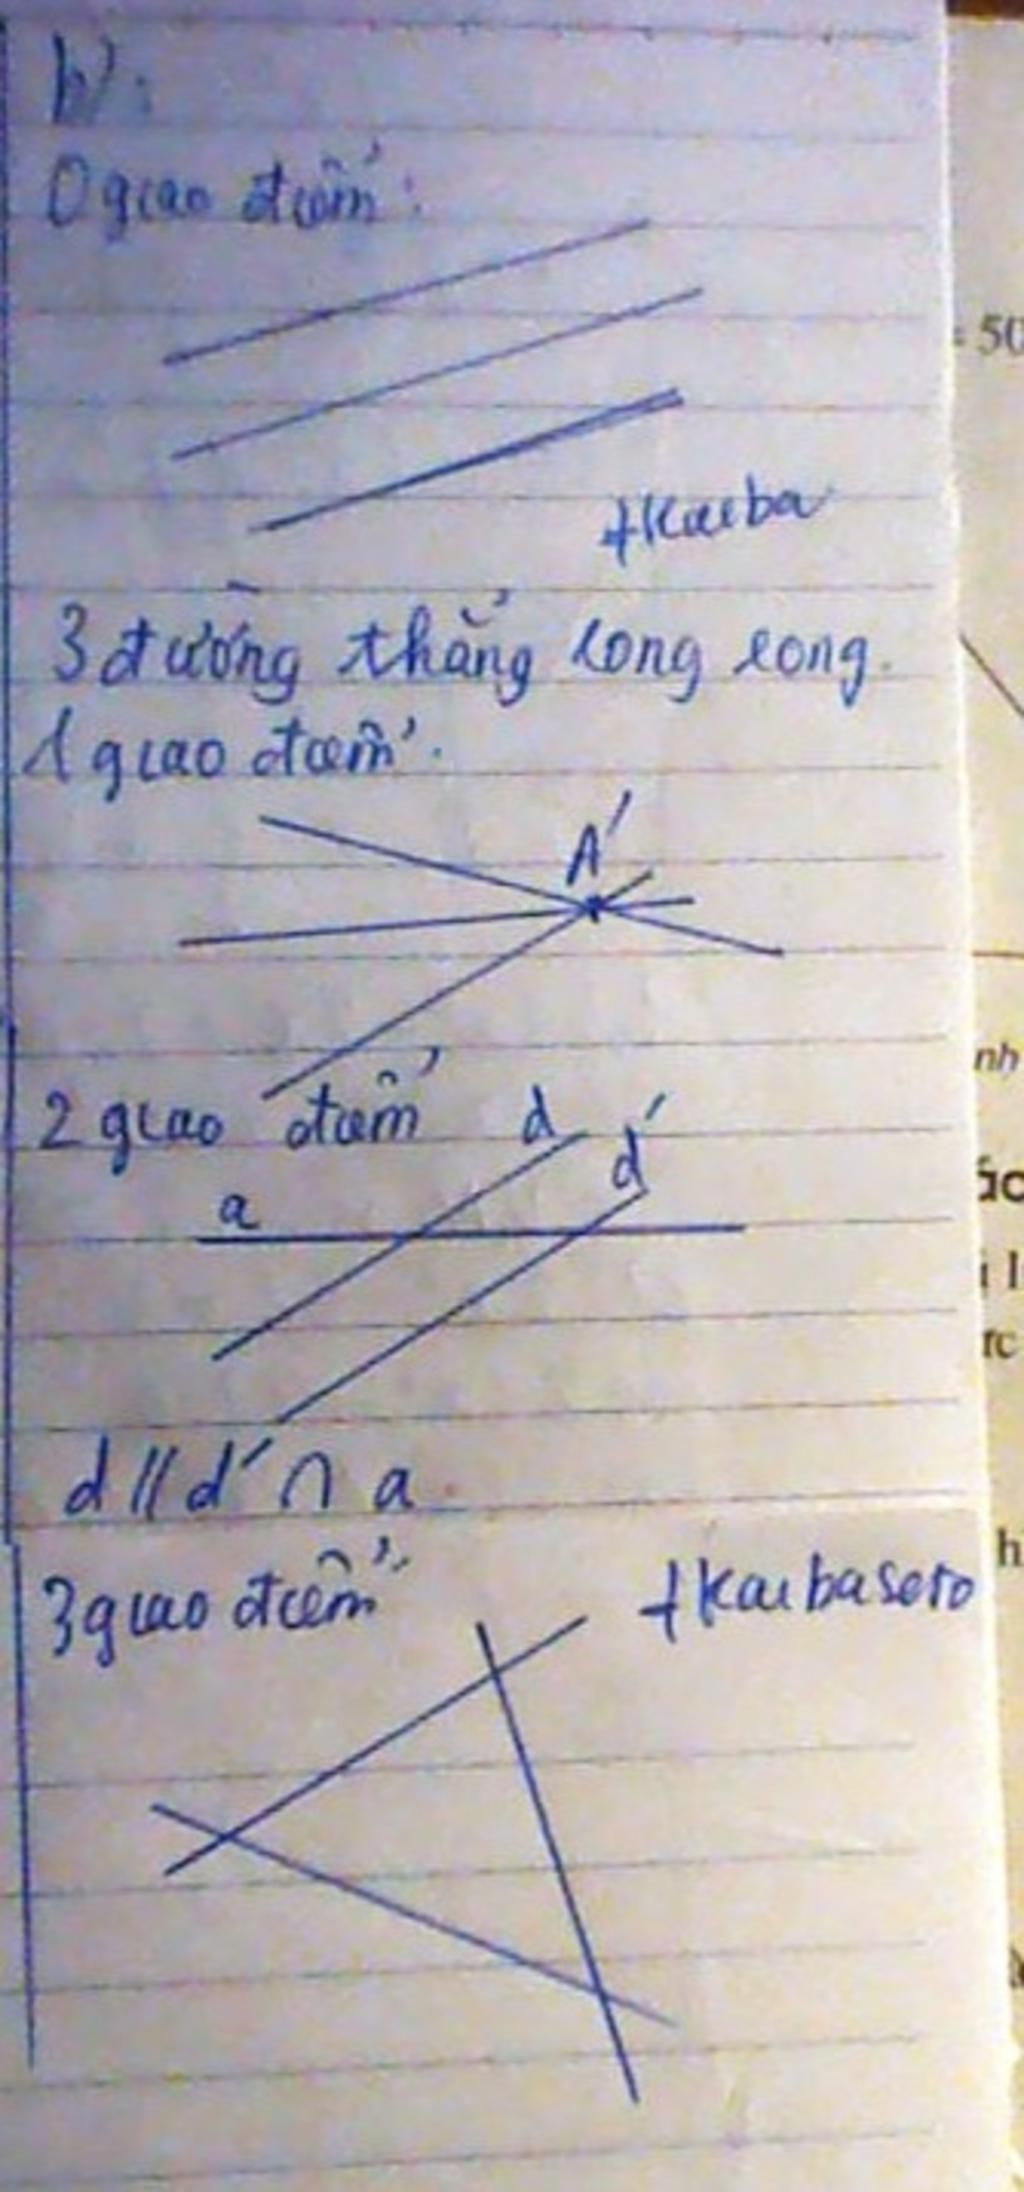 b):
0 giao điểm:
+Kaiba
3 đường thẳng song song.
1 giao điểm:
A'
2 giao điểm
d
d'
a
d // d' ∩ a
3 giao điểm:
+Kaibaseto
= 50
nh
ác
i l
rc
h